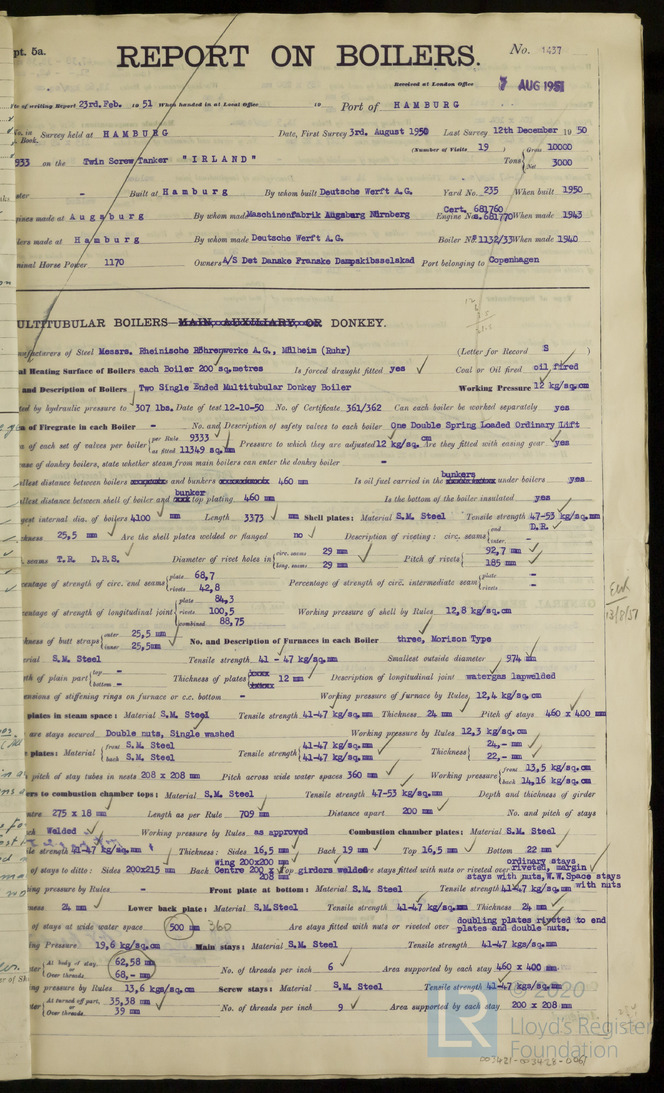 pt. 5a.
REPORT ON BOILERS.
No. 1437
Received at London Office 7 AUG 1951
of writing Report 23rd.Feb. 19 51 When handed in at Local Office 19 Port of HAMBURG
No. in Survey held at HAMBURG Date, First Survey 3rd. August 1950 Last Survey 12th December 1950
Book.
(Number of Visits 19 ) Gross 10000
933 on the Twin Screw Tanker "IRLAND" Tons Net 3000
- Built at Hamburg By whom built Deutsche Werft A.G. Yard No. 235 When built 1950
Cert. 681760
gines made at Augsburg By whom made Maschinenfabrik Augsburg Nürnberg Engine No. s.681770 When made 1943
lers made at Hamburg By whom made Deutsche Werft A.G. Boiler No. 1132/33 When made 1940
minal Horse Power 1170 Owners A/S Det Danske Franske Dampskibsselskad Port belonging to Copenhagen
ULTITUBULAR BOILERS MAIN, AUXILIARY, OR DONKEY.
nufacturers of Steel Messrs. Rheinische Röhrenwerke A.G., Mülheim (Ruhr) (Letter for Record S )
al Heating Surface of Boilers each Boiler 200 sq.metres Is forced draught fitted yes Coal or Oil fired oil fired
and Description of Boilers Two Single Ended Multitubular Donkey Boiler Working Pressure 12 kg/sq.cm
ted by hydraulic pressure to 307 lbs. Date of test 12-10-50 No. of Certificate 361/362 Can each boiler be worked separately yes
a of Firegrate in each Boiler - No. and Description of safety valves to each boiler One Double Spring Loaded Ordinary Lift
a of each set of valves per boiler per Rule 9333 as fitted 11349 sq.mm Pressure to which they are adjusted 12 kg/sq.cm Are they fitted with easing gear yes
ase of donkey boilers, state whether steam from main boilers can enter the donkey boiler -
allest distance between boilers and bunkers 460 mm Is oil fuel carried in the bunkers under boilers yes
allest distance between shell of boiler and bunker top plating 460 mm Is the bottom of the boiler insulated yes
gest internal dia. of boilers 4100 mm Length 3373 mm Shell plates: Material S.M. Steel Tensile strength 47-53 kg/sq.mm
ckness 25,5 mm Are the shell plates welded or flanged no Description of riveting: circ. seams end D.R. inter. -
seams T.R. D.B.S. Diameter of rivet holes in circ. seams 29 mm long. seams 29 mm Pitch of rivets 92,7 mm 185 mm
centage of strength of circ. end seams plate 68,7 rivets 42,8 Percentage of strength of circ. intermediate seam plate - rivets -
centage of strength of longitudinal joint plate 84,3 rivets 100,5 combined 88,75 Working pressure of shell by Rules 12,8 kg/sq.cm
kness of butt straps outer 25,5 mm inner 25,5 mm No. and Description of Furnaces in each Boiler three, Morison Type
erial S.M. Steel Tensile strength 41 - 47 kg/sq.mm Smallest outside diameter 974 mm
th of plain part top - bottom - Thickness of plates 12 mm Description of longitudinal joint watergas lapwelded
ensions of stiffening rings on furnace or c.c. bottom - Working pressure of furnace by Rules 12,4 kg/sq.cm
plates in steam space: Material S.M. Steel Tensile strength 41-47 kg/sq.mm Thickness 24 mm Pitch of stays 460 x 400 mm
are stays secured Double nuts, Single washed Working pressure by Rules 12,3 kg/sq.cm
plates: Material front S.M. Steel back S.M. Steel Tensile strength 41-47 kg/sq.mm 41-47 kg/sq.mm Thickness 24,- mm 22,- mm
pitch of stay tubes in nests 208 x 208 mm Pitch across wide water spaces 360 mm Working pressure front 13,5 kg/sq.cm back 14,16 kg/sq.cm
ers to combustion chamber tops: Material S.M. Steel Tensile strength 47-53 kg/sq.mm Depth and thickness of girder
ntre 275 x 18 mm Length as per Rule 709 mm Distance apart 200 mm No. and pitch of stays
ch Welded Working pressure by Rules as approved Combustion chamber plates: Material S.M. Steel
ile strength 41-47 kg/sq.mm Thickness: Sides 16,5 mm Back 19 mm Top 16,5 mm Bottom 22 mm
of stays to ditto: Sides 200x215 mm Back Wing 200x200 mm Centre 200 x 208 mm Top girders welded Are stays fitted with nuts or riveted over ordinary stays riveted, margin stays with nuts, W.W.Space stays with nuts
ing pressure by Rules - Front plate at bottom: Material S.M. Steel Tensile strength 41-47 kg/sq.mm
ness 24 mm Lower back plate: Material S.M.Steel Tensile strength 41-47 kg/sq.mm Thickness 24 mm
of stays at wide water space 500 mm 360 Are stays fitted with nuts or riveted over doubling plates riveted to end plates and double nuts.
ing Pressure 19,6 kg/sq.cm Main stays: Material S.M. Steel Tensile strength 41-47 kgs/sq.mm
eter At body of stay, 62,58 mm or Over threads 68,- mm No. of threads per inch 6 Area supported by each stay 460 x 400 mm
ing pressure by Rules 13,6 kgs/sq.cm Screw stays: Material S.M. Steel Tensile strength 41-47 kgs/sq.mm
eter At turned off part, 35,38 mm or Over threads 39 mm No. of threads per inch 9 Area supported by each stay 200 x 208 mm
13/8/51
© 2020
LR
Lloyd's Register
Foundation
003421-003428-0061